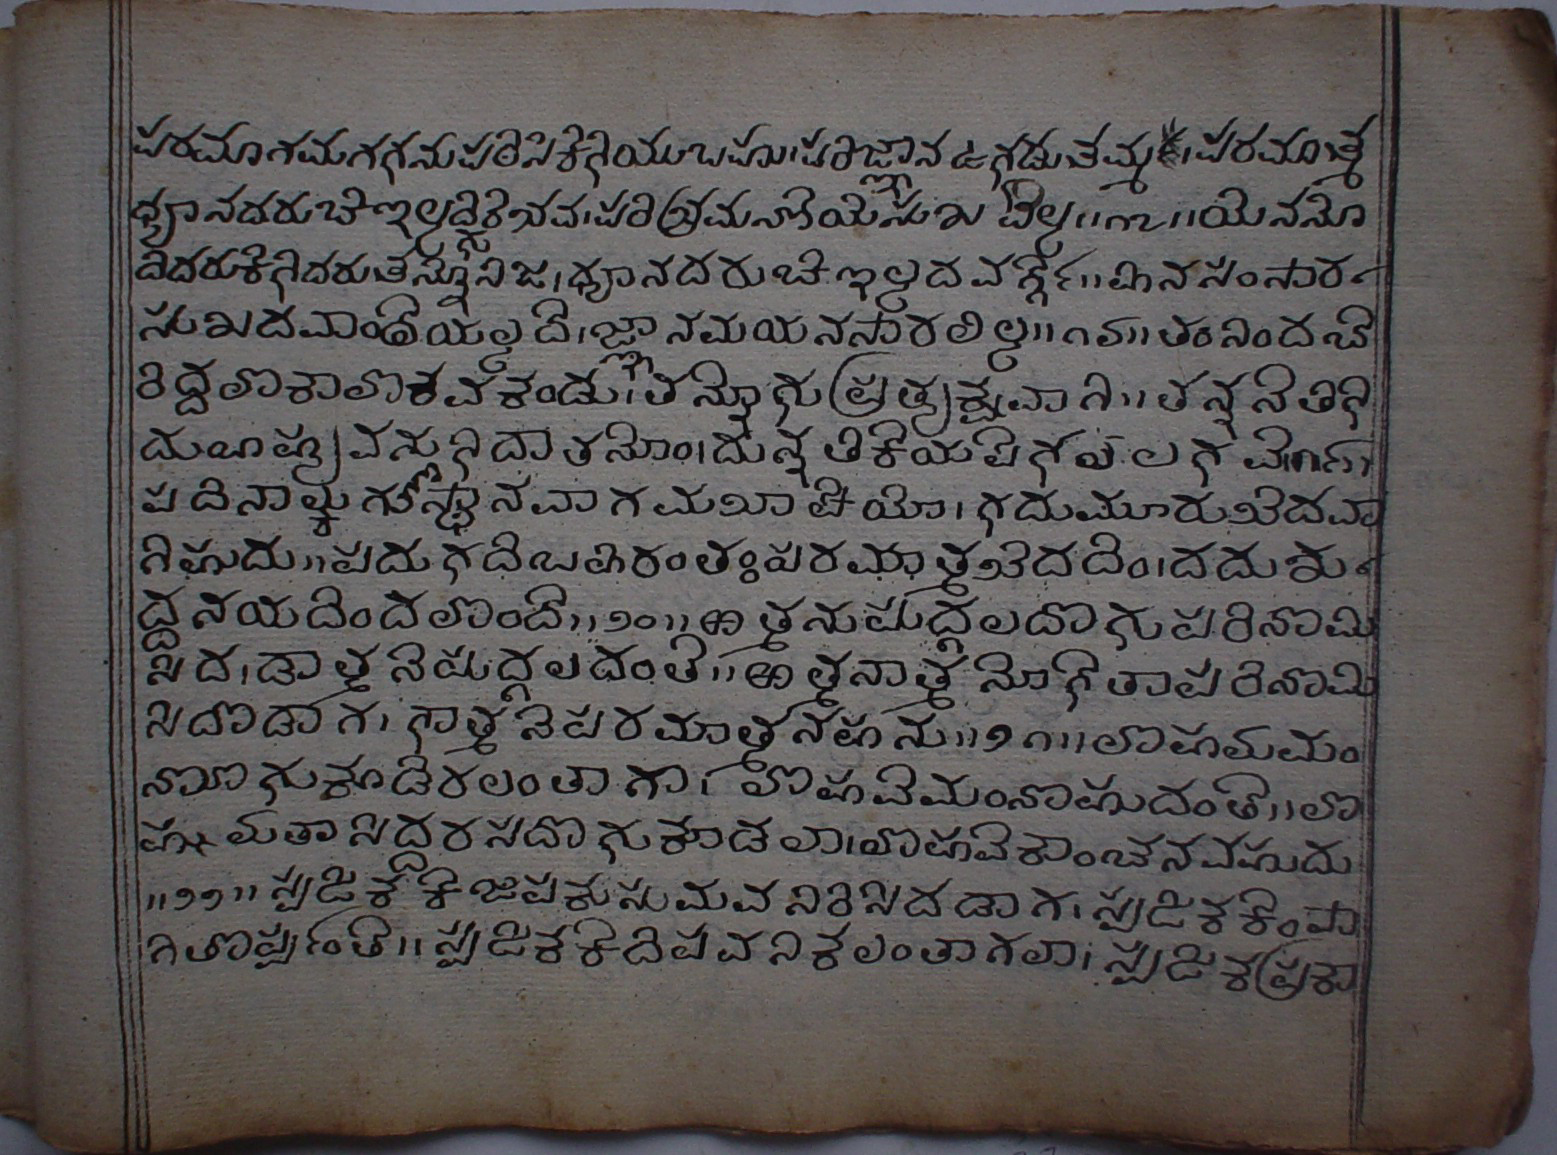 ಪರಮಾಗಮಗಗನು ಪಠಿಸಿಕೆಳಿಯು ಬಹು। ಪರಿಜ್ಞಾನ ಉಳ್ಳಡು ತಮ್ಮ। ಪರಮಾತ್ಮ
ಧ್ಯಾನದ ರುಚಿ ಇಲ್ಲದಿರೆ ಭವ। ಪರಿಭ್ರಮನೆಯೆ ಸುಖವಿಲ್ಲ॥೧೭॥ಯೆನನೊ
ದಿದರು ಕೆಳಿದರು ತನ್ನ ನಿಜ। ಧ್ಯಾನದ ರುಚಿ ಇಲ್ಲದವರ್ಗ್ಗೆ॥ಹಿನ ಸಂಸಾರ
ಸುಖದ ವಾಂಛೆಯಲ್ಲದೆ। ಜ್ಞಾನಮಯನ ಸಾರಲಿಲ್ಲ॥೧೮॥ತಂನಿಂದ ಬೆ
ರಿದ್ದ ಲೊಕಾಲೊಕವ ಕಂಡು। ತನ್ನೊಳು ಪ್ರತ್ಯಕ್ಷವಾಗಿ॥ತನ್ನನೆ ತಿಳಿ
ದು ಬಾಹ್ಯವನುಳಿದಾತನೊಂ। ದುನ್ನತಿಕೆಯ ಪೆಳವಲಳವೆ॥೧೯॥
ಪದಿನಾಲ್ಕು ಗುಣಸ್ಥಾನವಾಗಮಭಾಷೆಯೊ। ಳದು ಮೂರು ಭೆದವಾ
ಗಿಹುದು॥ಪದುಳದಿ ಬಹಿರಂತಃಪರಮಾತ್ಮ ಭೆದದಿಂ। ದದು ಶು
ದ್ಧನಯದಿಂದಲೊಂದೆ॥೨೦॥ಆತ್ಮನು ಪುದ್ಗಲದೊಳು ಪರಿನಾಮಿ
ಸಿದ। ಡಾತ್ಮನೆ ಪುದ್ಗಲದಂತೆ॥ಆತ್ಮನಾತ್ಮನೊಳೆ ತಾ ಪರಿನಾಮಿ
ಸಿದೊಡಾಗ। ಳಾತ್ಮನೆ ಪರಮಾತ್ಮನಹನು॥೨೧॥ಲೊಹಮಮಂ
ನೊಳು ಕೂಡಿರಲಂತಾಗಳಾ। ಲೊಹವೆ ಮಂನೊಹುದಂತೆ॥ಲೊ
ಹ ಮತಾ ಸಿದ್ಧರಸದೊಳು ಕೂಡಲಾ। ಲೊಹವೆ ಕಾಂಚನವಹುದು
॥೨೨॥ಸ್ಪಟಿಕಕೆ ಜಪಕುಸುಮವ ನಿರಿಸಿದಡಾಗ। ಸ್ಪಟಿಕ ಕೆಂಪಾ
ಗಿ ತೊರ್ಪ್ಪಂತೆ॥ಸ್ಪಟಿಕಕೆ ದಿಪವನಿಕಲಂತಾಗಲಾ। ಸ್ಪಟಿಕ ಪ್ರಕಾ